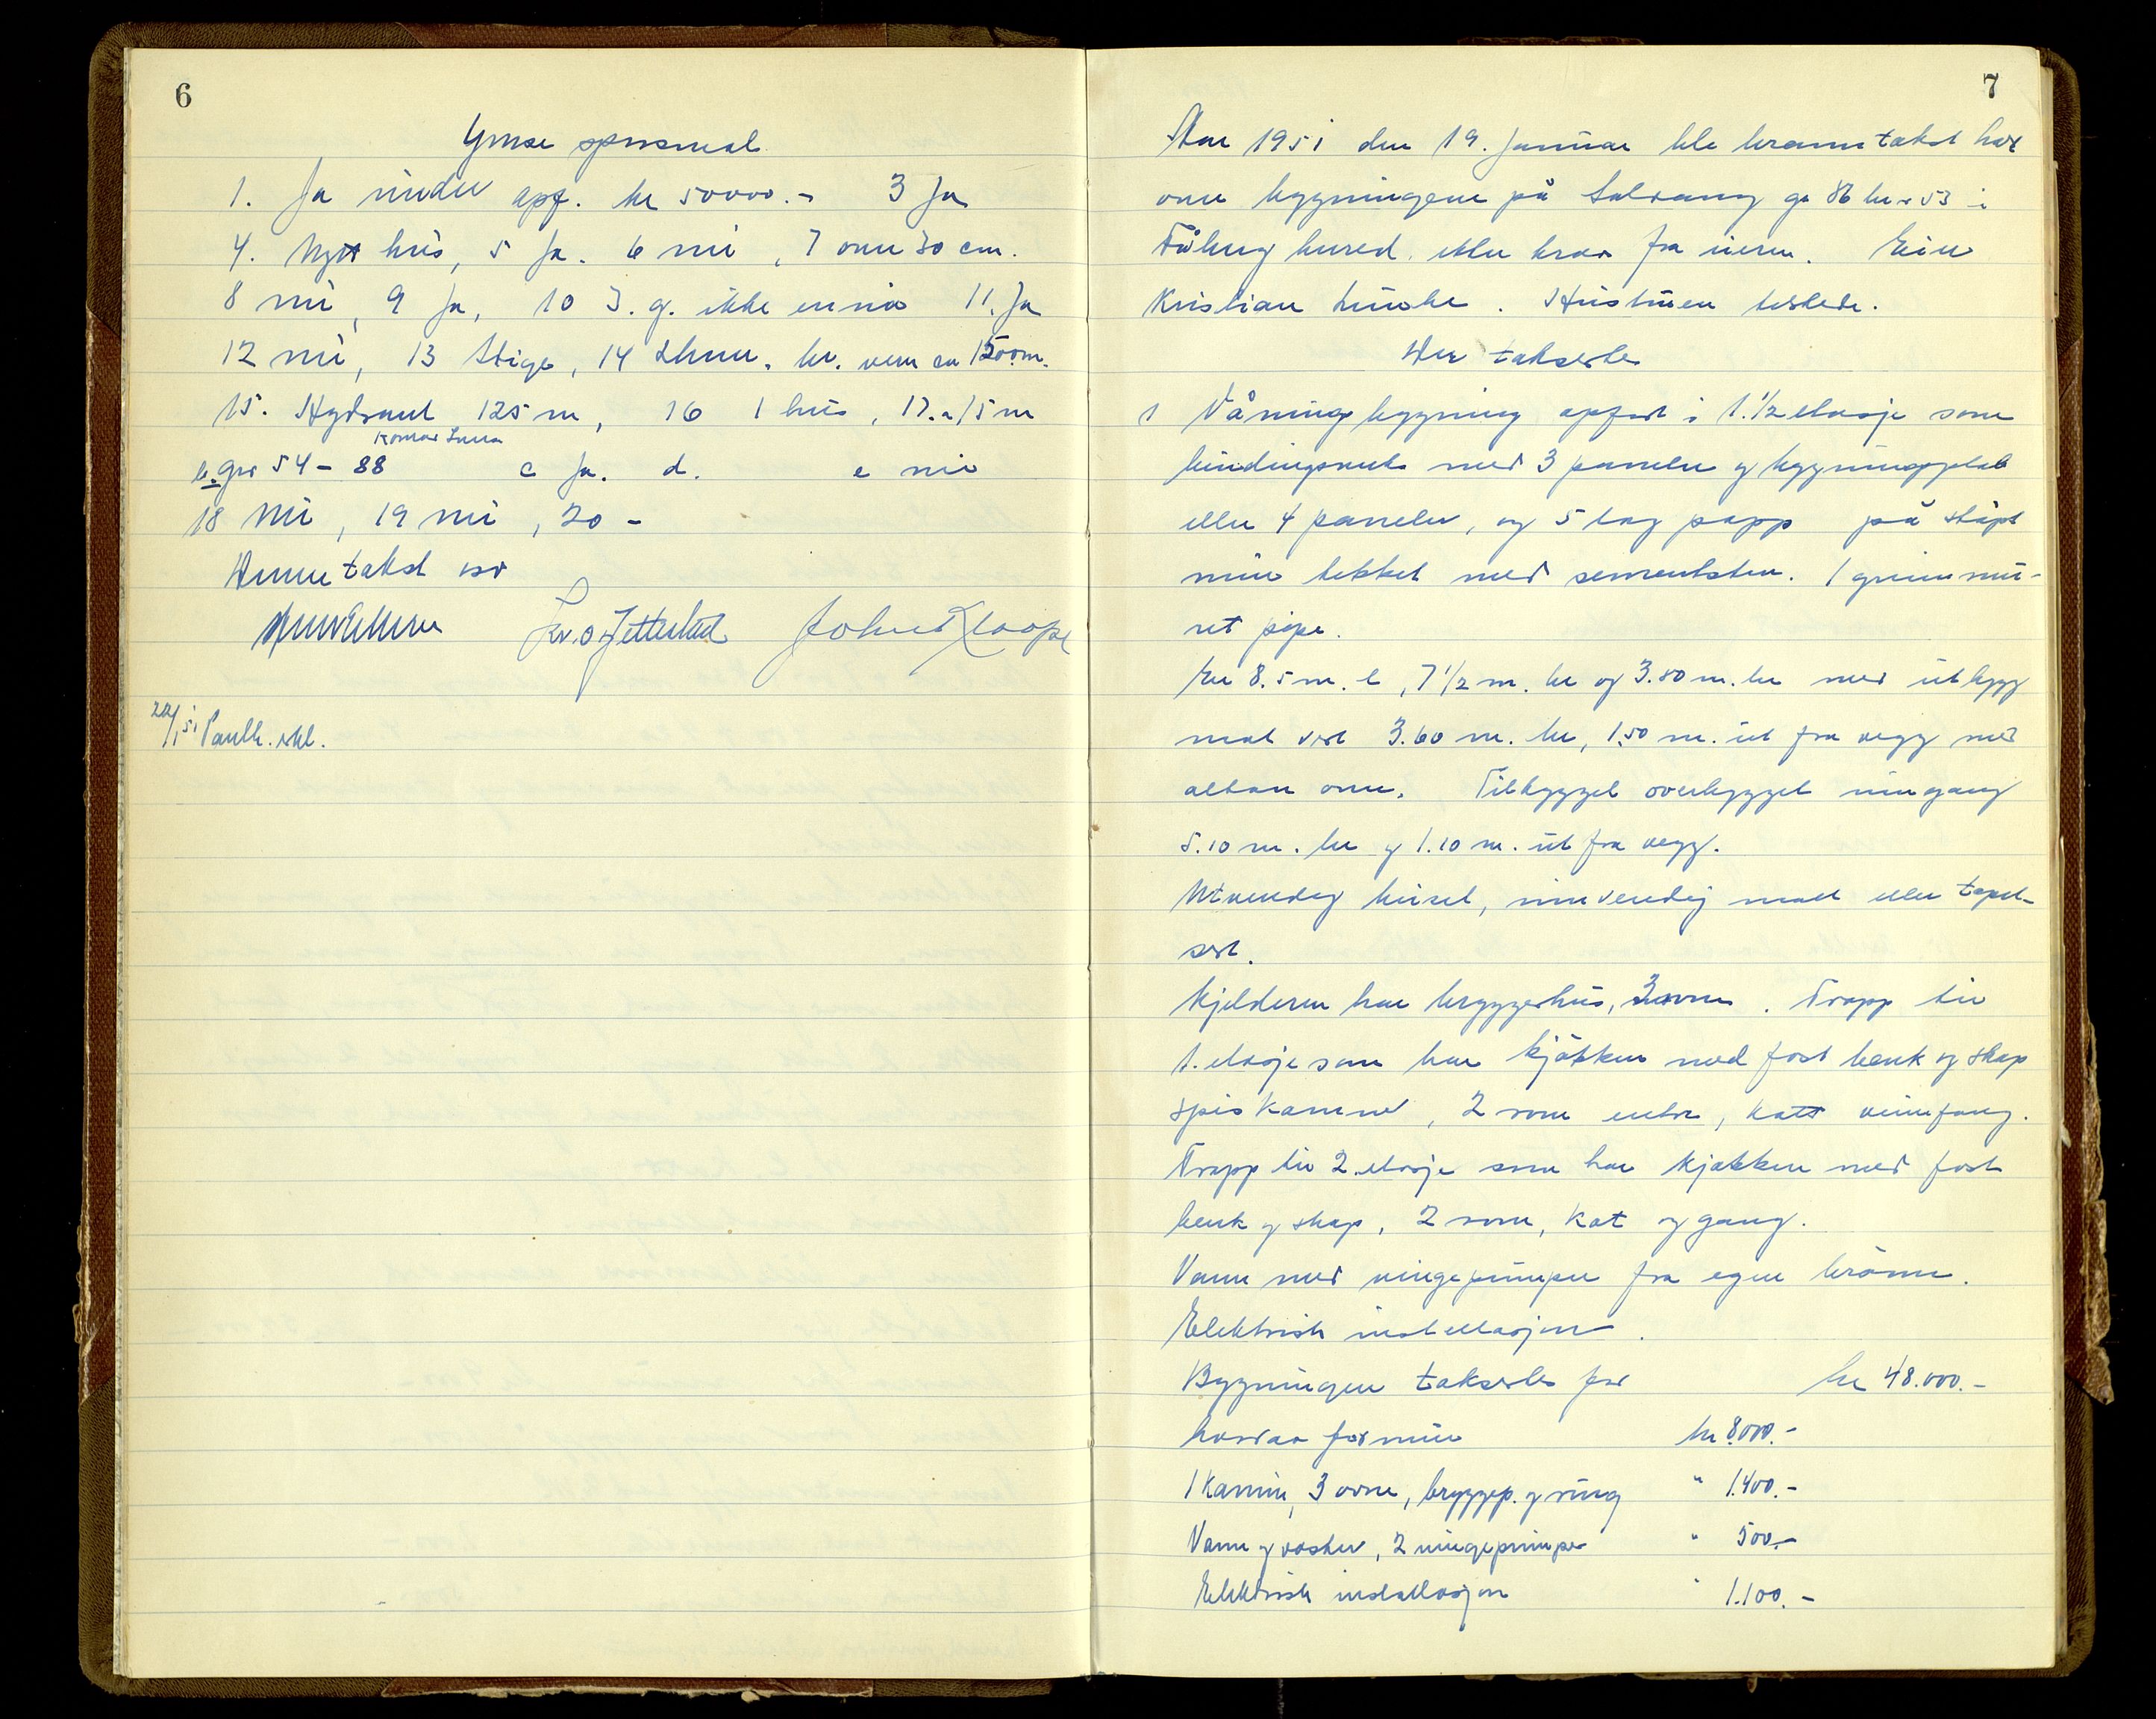 6
Ymse spursmål
1. Ja under oppf. kr 50000.- 3 Ja
4. Nytt hus, 5 Ja. 6 nei, 7 over 30 cm.
8 nei, 9 Ja, 10 3. g. ikke ennå 11. Ja
12 nei, 13 Stige, 14 br. vern ca 1500 m.
15. Hydrant 125 m, 16 1 hus, 17. a 15 m
b. gr 54 - 88 c Ja. d. e nei
18 Nei, 19 nei, 20 -
Denne takst
22/1 51 Pantl. erkl.
7
Aar 1951 den 19. Januar ble branntakst hol
over bygningene på Solvang g 86 br n 53 i
Fåberg herred, etter krav fra eieren. Eier
Kristian Hustruen tilstede.
Der takserte
1 Våningbygning oppført i 1. 1/2 etasje som
bindingsverk med 3 paneler og bygningsplat
eller 4 paneler, og 5 lag papp på støpt
mur tekket med sementsten. 1 grunnmu-
ret pipe.
Er 8.5 m. l, 7 1/2 m. br og 3.80 m. h med utbygg
mot vest 3.60 m. br, 1.50 m. ut fra vegg med
altan over. Tilbygget overbygget inngang
5.10 m. br og 1.10 m. ut fra vegg.
Utvendig beiset, innvendig malt eller tapet-
sert.
Kjelderen har bryggerhus, 3 rom. Trapp til
1. etasje som har kjøkken med fast benk og skap
spiskammer, 2 rom entre, kott vinnfang.
Trapp til 2. etasje som har kjøkken med fast
benk og skap, 2 rom, kot og gang.
Vann med vingepumper fra egen brønn.
Elektrisk installasjon.
Bygningen takseres for kr 48.000.-
hvorav for mur kr 8.000.-
1 Kamin, 3 ovne, bryggep. og ring " 1.400.-
Vann og vasker, 2 vingepumper " 500.-
Elektrisk installasjon " 1.100.-